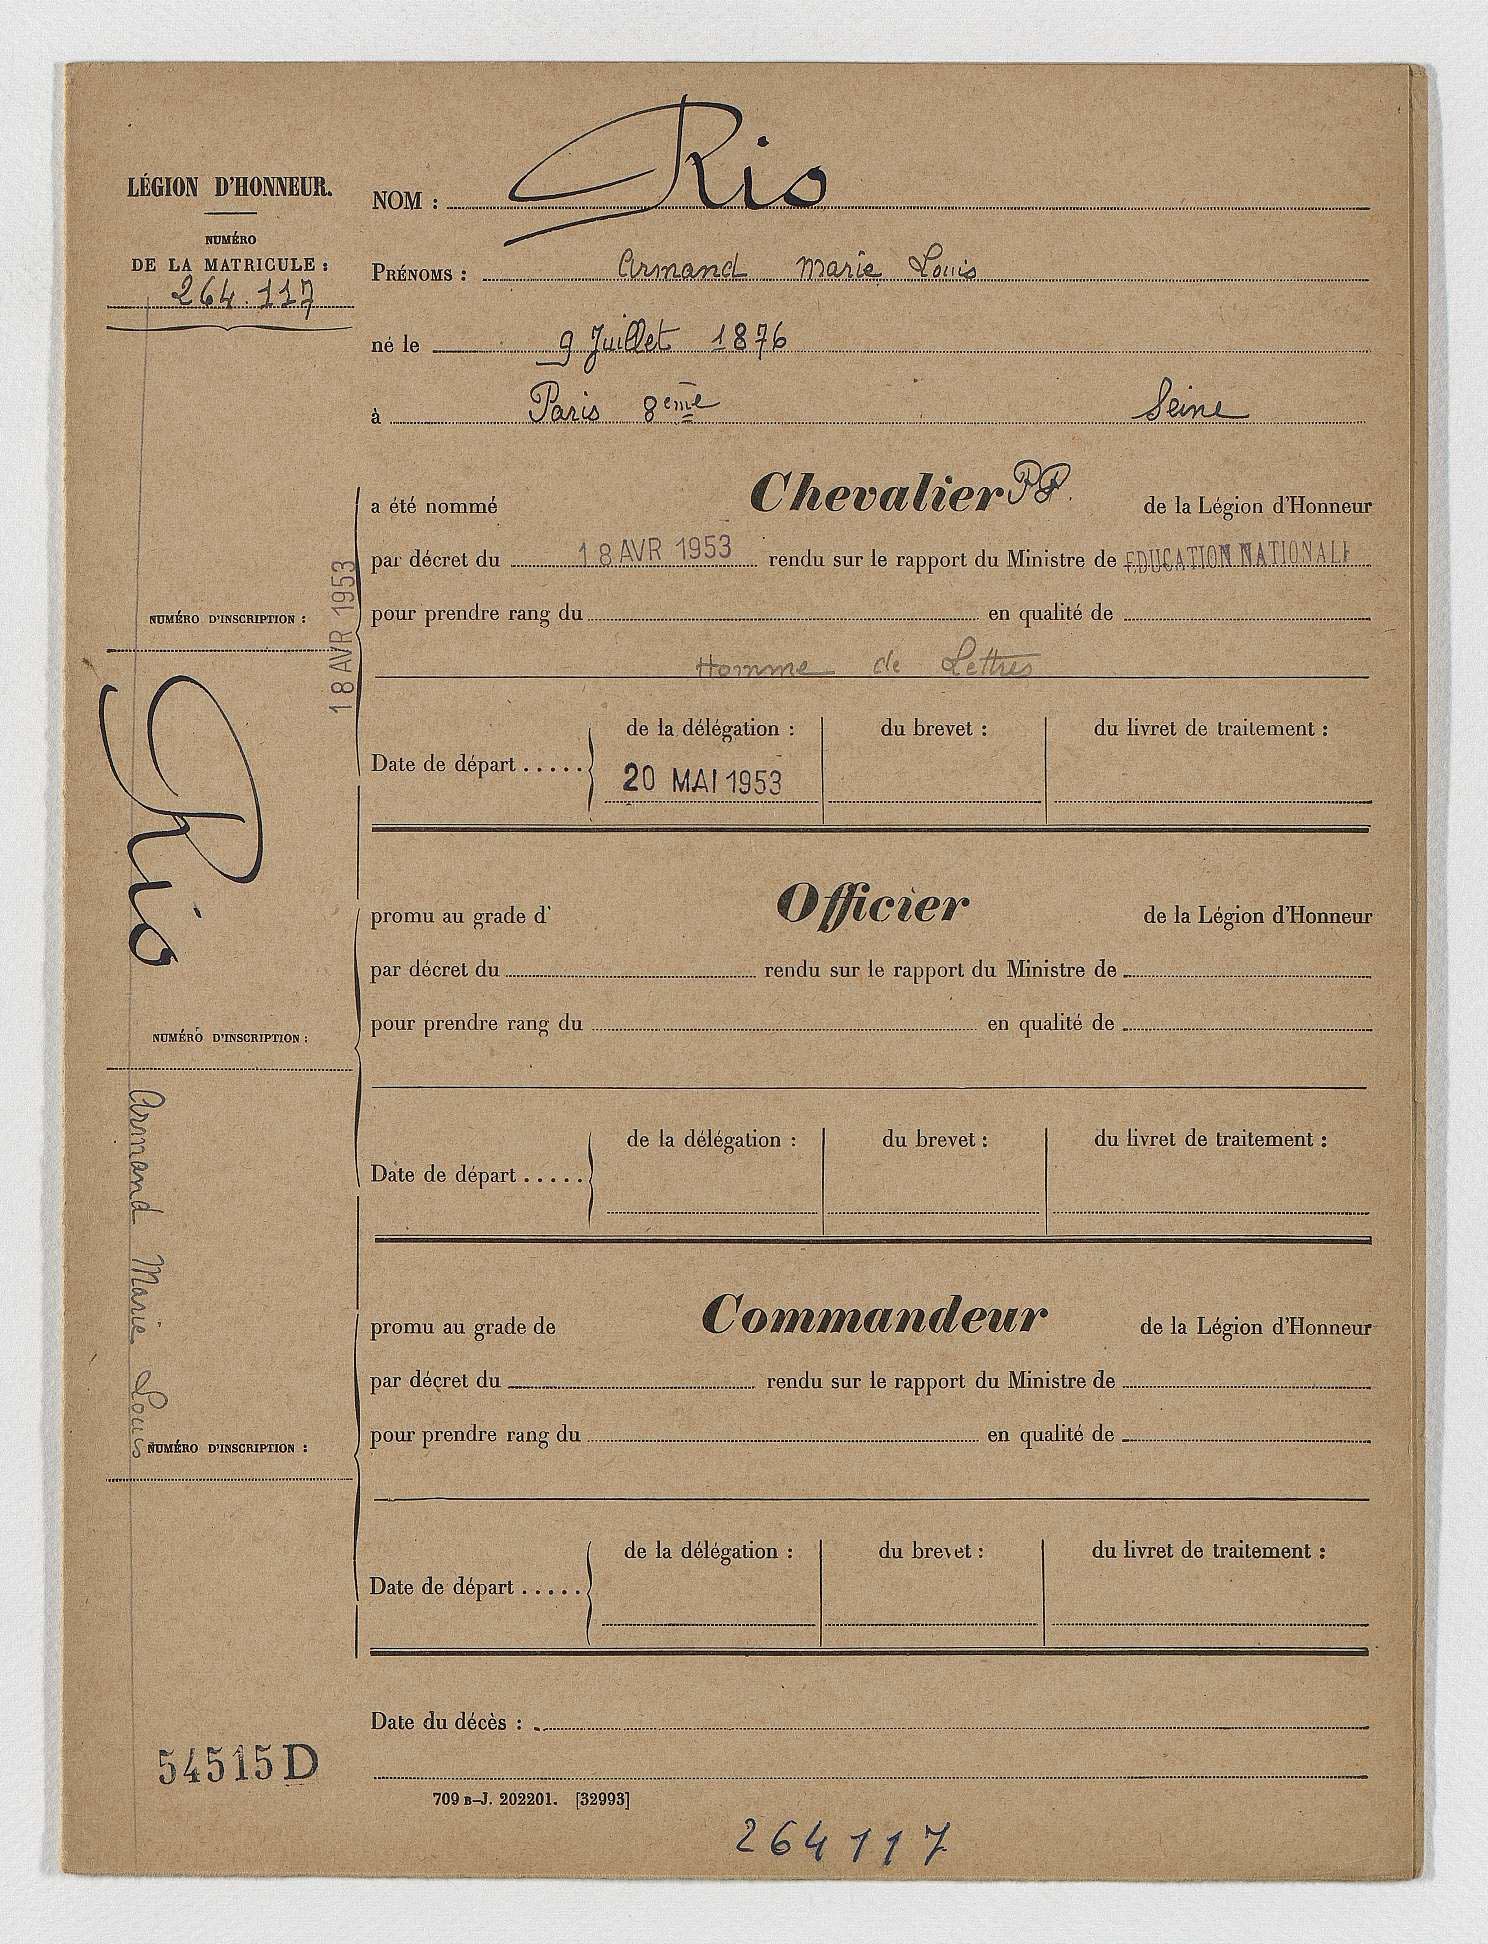 LÉGION D'HONNEUR.
NUMÉRO
DE LA MATRICULE :
264.117
NOM : Rio
PRÉNOMS : Armand Marie Louis
né le 9 Juillet 1876
à Paris 8eme Seine
a été nommé Chevalier PF. de la Légion d'Honneur
par décret du 18 AVR 1953 rendu sur le rapport du Ministre de EDUCATION NATIONALE
pour prendre rang du en qualité de
Homme de Lettres
NUMÉRO D'INSCRIPTION :
18 AVR 1953
de la délégation : du brevet : du livret de traitement :
Date de départ .....
20 MAI 1953
Rio
promu au grade d' Officier de la Légion d'Honneur
par décret du rendu sur le rapport du Ministre de
pour prendre rang du en qualité de
NUMÉRO D'INSCRIPTION :
de la délégation : du brevet : du livret de traitement :
Date de départ .....
Armand Marie Louis
promu au grade de Commandeur de la Légion d'Honneur
par décret du rendu sur le rapport du Ministre de
pour prendre rang du en qualité de
NUMÉRO D'INSCRIPTION :
de la délégation : du brevet : du livret de traitement :
Date de départ .....
Date du décès :
54515 D
709 B-J. 202201. [32993]
264117